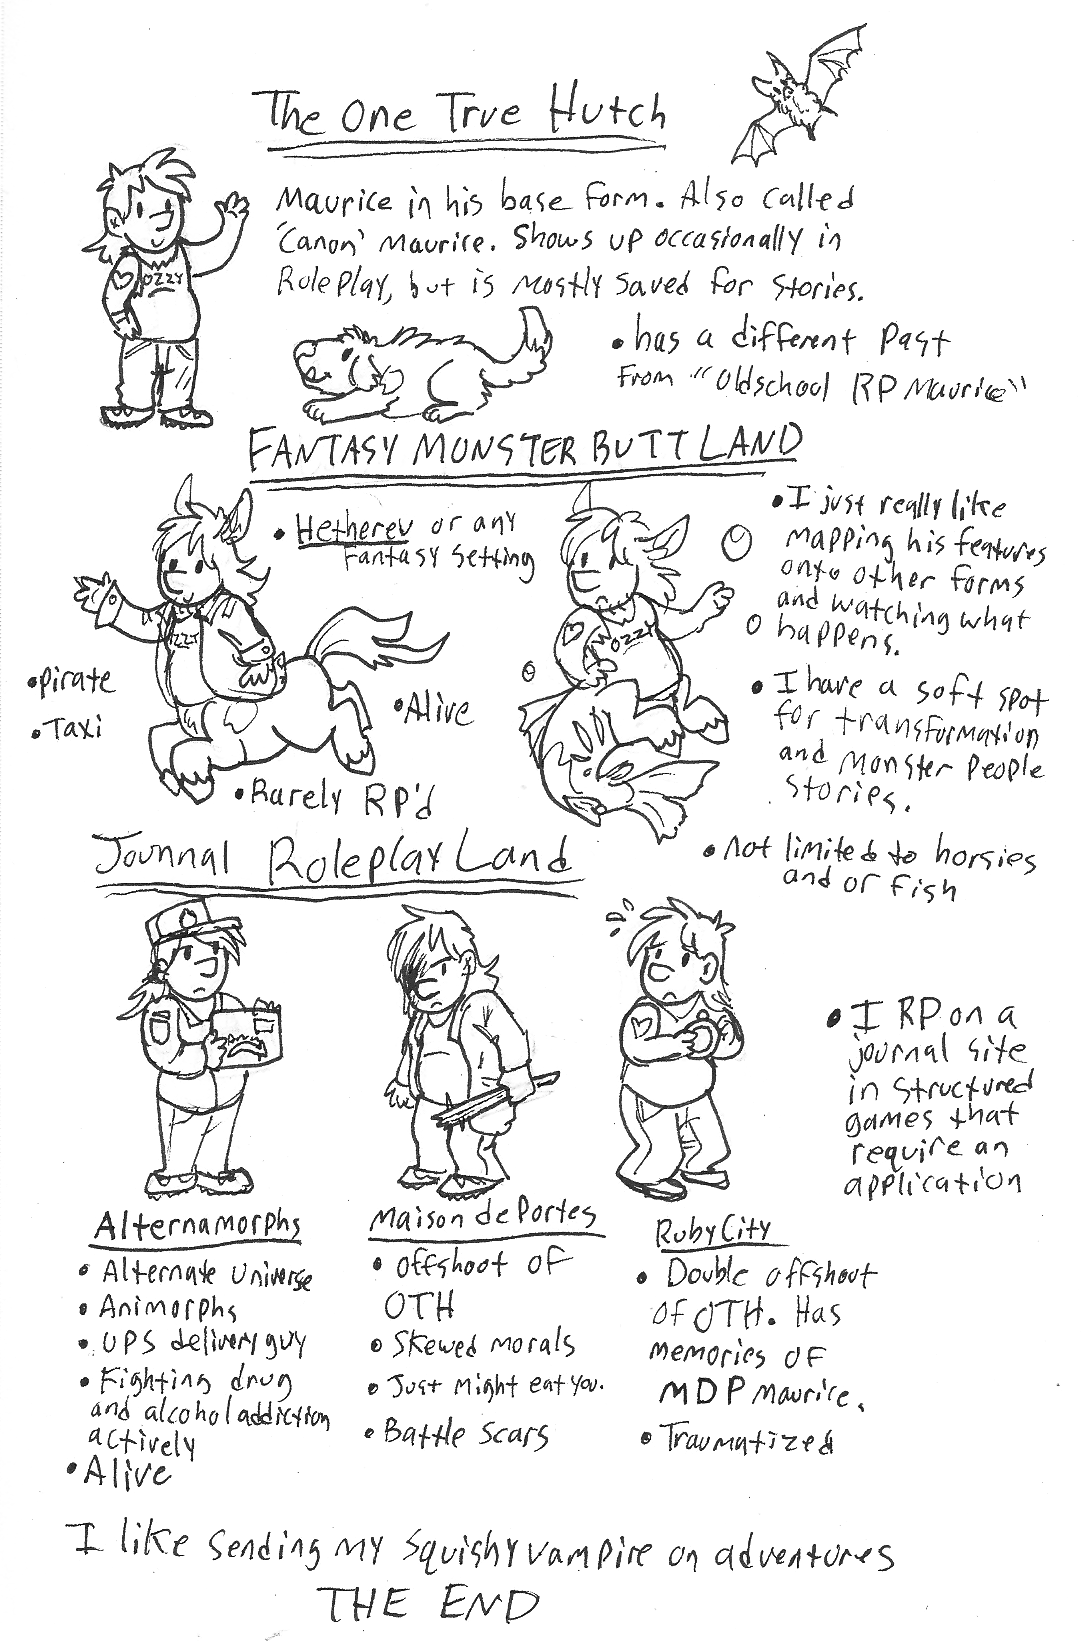 The One True Hutch
Maurice in his base form. Also called
'Canon' Maurice. Shows up occasionally in
Roleplay, but is mostly saved for stories.
OZZY
• has a different past
from "Oldschool RP Maurice"
FANTASY MONSTER BUTT LAND
• Hetherev or any
Fantasy setting
• Pirate
• Taxi
• Alive
• Rarely RP'd
OZZY
• I just really like
mapping his features
onto other forms
and watching what
happens.
• I have a soft spot
for transformation
and monster people
stories.
• not limited to horsies
and or fish
Jounnal Roleplay Land
• I RP on a
journal site
in structured
games that
require an
application
Alternamorphs
• Alternate Universe
• Animorphs
• UPS delivery guy
• Fighting drug
and alcohol addiction
actively
• Alive
Maison de Portes
• Offshoot of
OTH
• Skewed morals
• Just might eat you.
• Battle Scars
Ruby City
• Double offshoot
of OTH. Has
memories of
MDP Maurice.
• Traumatized
I like sending my squishy vampire on adventures
THE END